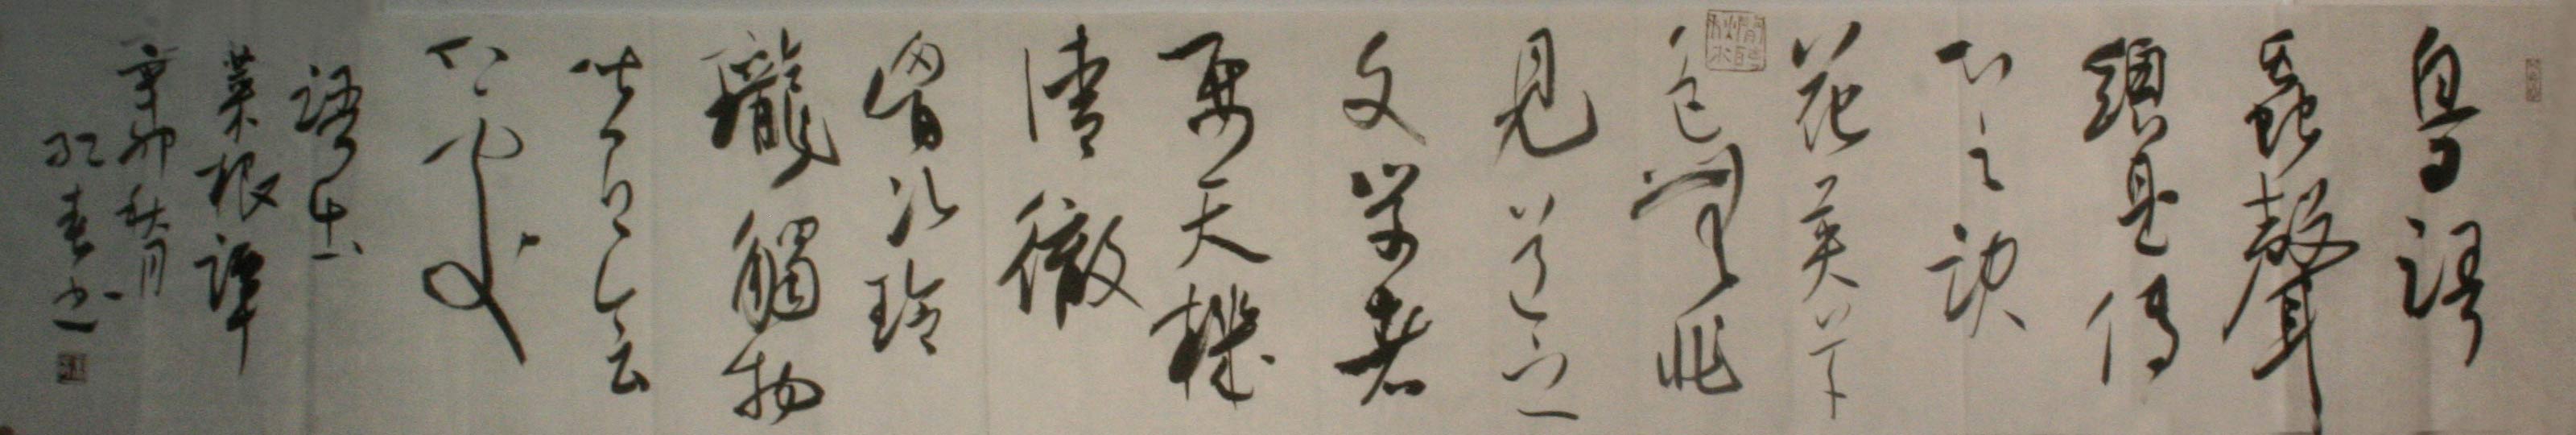 鳥語
蟲聲
總是傳
心之訣
花英草
色無非
見道之
文學者
要天機
清徹
胷次玲
瓏觸物
皆有會
心處
語出
菜根譚
辛卯秋月